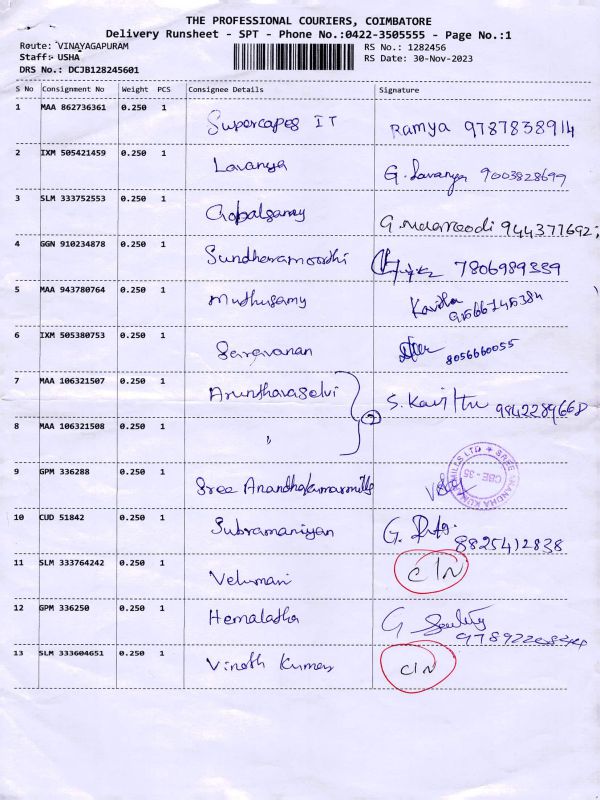 THE PROFESSIONAL COURIERS, COIMBATORE
Delivery Runsheet - SPT - Phone No.:0422-3505555 - Page No.:1
Route: VINAYAGAPURAM
Staff: USHA
DRS No.: DCJB128245601
RS No.: 1282456
RS Date: 30-Nov-2023
S No Consignment No Weight PCS Consignee Details Signature
1 MAA 862736361 0.250 1
Supercapes IT Ramya 9787838914
2 IXM 505421459 0.250 1
Lavanya G. Lavanya 9003828699
3 SLM 333752553 0.250 1
Gopalsamy G.
4 GGN 910234878 0.250 1
Sundharamoorthi 7806989339
5 MAA 943780764 0.250 1
Muthusamy Kavitha
6 IXM 505380753 0.250 1
Saravanan 8056660055
7 MAA 106321507 0.250 1
Arunthavaselvi S. 9842289668
8 MAA 106321508 0.250 1
"
2
9 GPM 336288 0.250 1
Sree Anandhakumarmills
SREE ANANDHA KUMAR MILLS LTD
CBE - 35
10 CUD 51842 0.250 1
Subramaniyan G.
8825412838
11 SLM 333764242 0.250 1
Velumani C/N
12 GPM 336250 0.250 1
Hemalatha G
13 SLM 333604651 0.250 1
Vinoth Kumar C/N